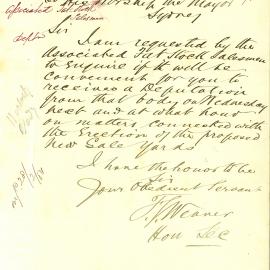 the Mayor
Sydney
Associated Stock
Salesmen
Sir
I am requested by the
Associated Fat Stock Salesmen
to Enquire if it will be
convenient for you to
receive a Deputation
from that body on Wednesday
next and at what hour
on matters connected with
the Erection of the proposed
new Sale Yards
I have the honor to be
Sir
Your Obedient Servant
F. J. Weaver
Hon Sec